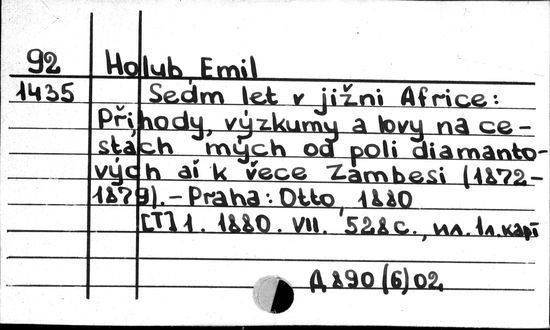 92 Holub, Emil
1435 Sedm let v jižni Africe:
Přihody, výzkumy a lovy na ce-
stách mých od poli diamanto-
vých aí k řece Zambesi (1872-
1879). – Praha: Otto, 1880
[T] 1. 1880. VII. 528 c., ил. 1л. карт
Д 890 (6) 02